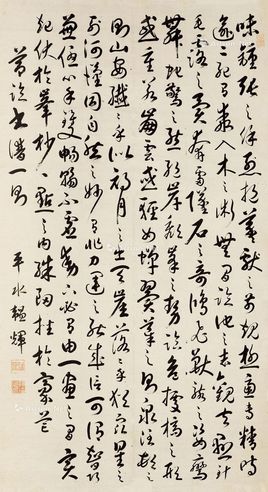 味鍾張之餘烈挹羲獻之前規極慮專精時
逾二紀有乖入木之術無間臨池之志觀夫懸針
垂露之異奔雷墜石之奇鴻飛獸駭之姿鸞
舞蛇驚之態絕岸頹峯之勢臨危據槁之形
或重若崩雲或輕如蟬翼導之則泉注頓之
則山安纖纖乎似初月之出天崖落落乎猶眾星之
列河漢同自然之妙有非力運之能成信可謂智巧
兼優心手雙暢翰不虛動下必有由一畫之間變
起伏於峯杪一點之內殊衄挫於豪芒
節臨書譜一則
平水韞輝